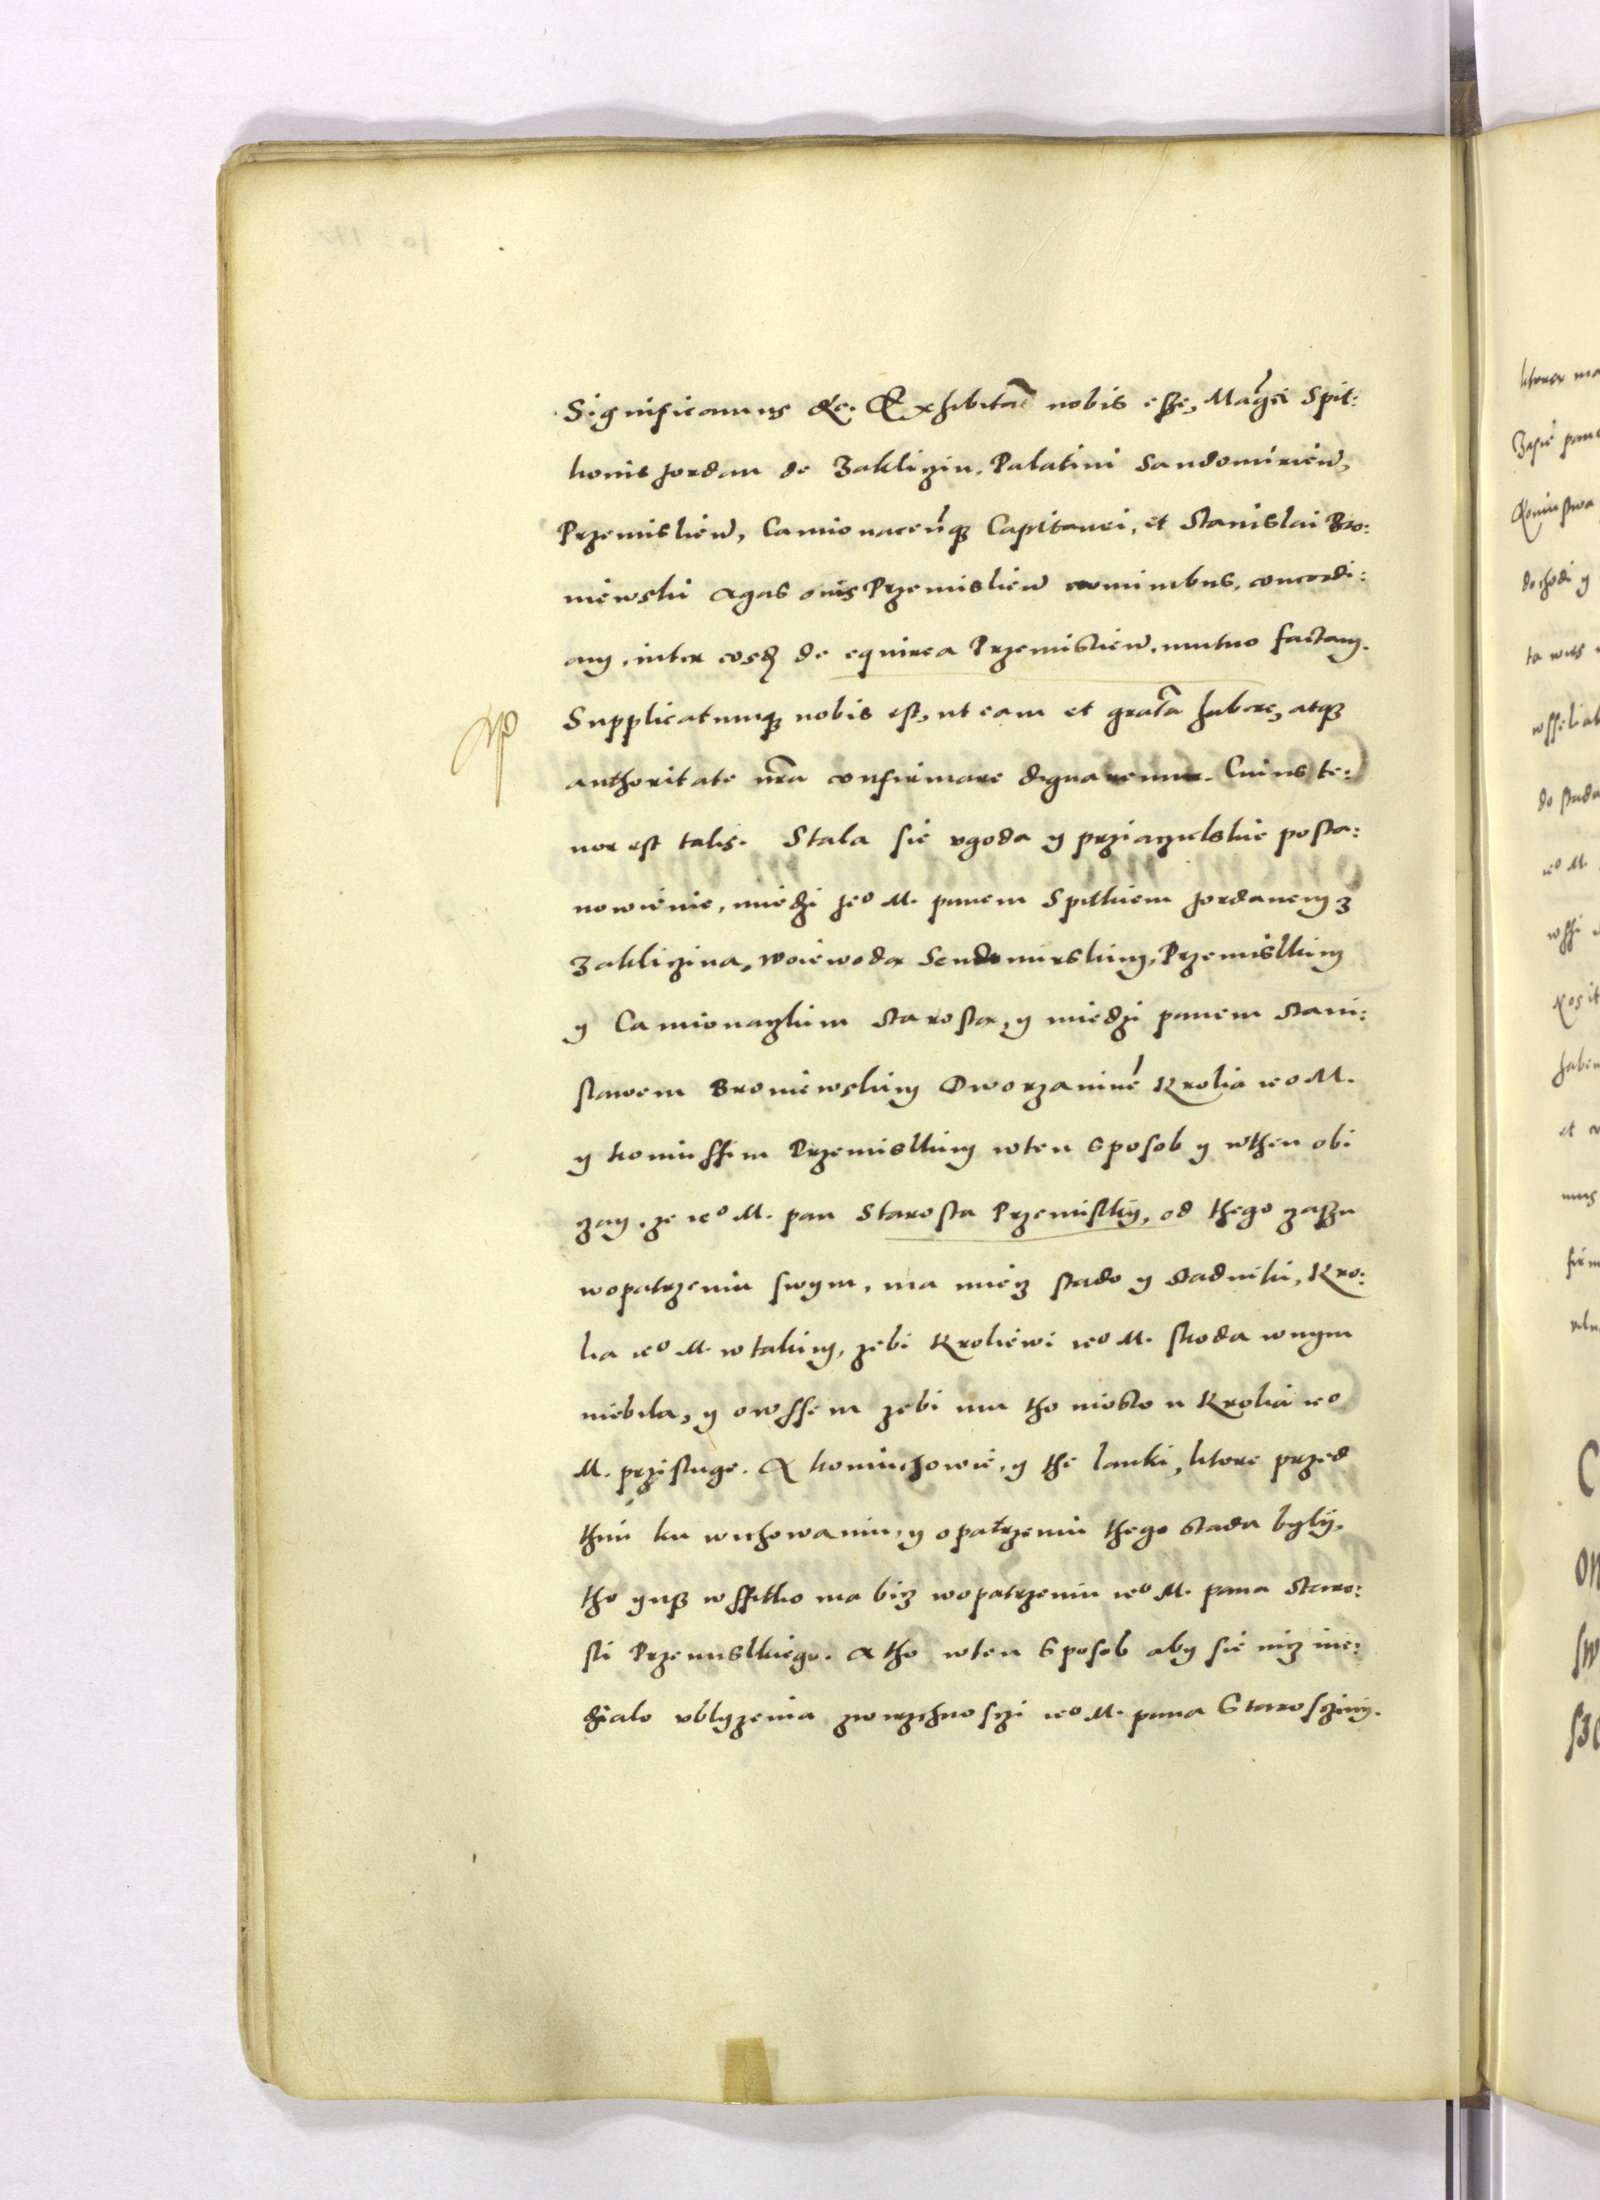 Significamus &c. Exhibitã nobis esse, Mag̃ci Spit:
konis Jordan de Zakliczin, Palatini Sandomirien̄,
Przemislien̄, Camionacen̄q̨ Capitanei, et Stanislai Bro:
niewski Agasonis Przemislien̄ nominibus, concordi:
am, inter eosd̨ de equirea Przemislien̄ mutuo factam.
Supplicatumq̨ nobis est, ut eam et gratã habere, atq̨
authoritate nrã confirmare dignaremur. Cuius te:
nor est talis. Stala sie vgoda y prziaczielskie posta:
nowienie, miedzi Jeo M. panem Spitkiem Jordanem z
Zakliczina, woiewoda Sendomirskim, Przemislkim
y Camionaczkim starosta, y miedzi panem Stani:
slawem Broniewskim Dworzaninē Krolia ieo M.
y koniussim Przemislkim wten sposob y wthen obi
czay, ze ieo M. pan Starosta Przemislky, od thego czassu
wopatrzeniu swym, ma miecz stado y stadniki, Kro:
lia ieo M. w takim, zebi Kroliewi ieo M. skoda wnym
niebila, y owssem zebi mu tho niosto u Krolia ieo
M. przisluge. A koniuchowie, y the lanki, ktore przed
thim ku wichowaniu, y opatrzeniu thego stada byly,
tho yusz wssitko ma bicz wopatrzeniu ieo M. pana Staro:
sti Przemislkiego. A tho wten sposob aby sie nicz nie:
dzialo vblyzenia zwierzchnosczi ieo M. pana Starosczinij.